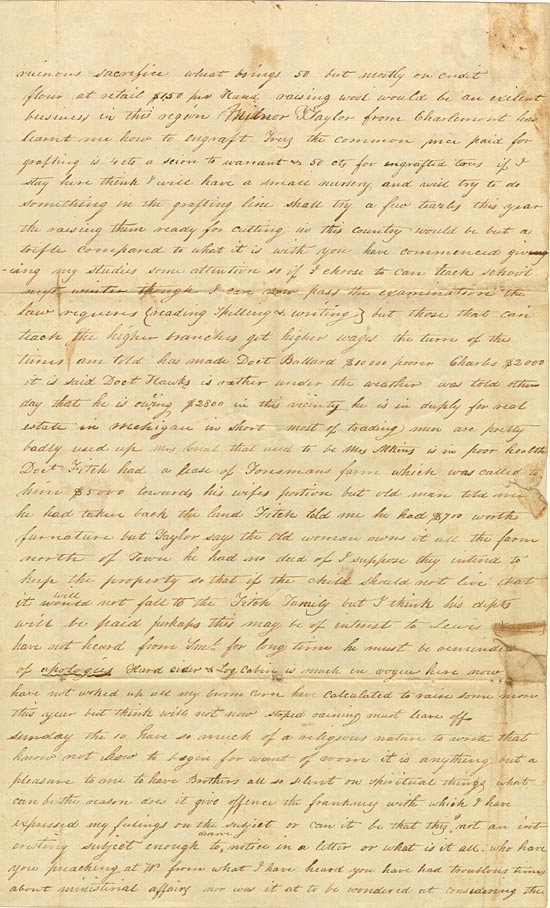 ruinous sacrifice wheat brings 50 but mostly on cridit
flour at retail $1.50 per Hund raising wool would be an exilent
business in this region Milnor Taylor from Charlemont has
learnt me how to engraft Trees the common price paid for
grafting is 4 cts a scion to warrant & 50 cts for engrafted trees if I
stay here think I will have a small nursery and will try to do
something in the grafting line shall try a few teazles this year
the raising them ready for cutting in this country would be but a
trifle compared to what it is with you have commenced giv
-ing my studies some attention so if I choose to can teach school
next winter though I can now pass the examination the
law requires (reading Spelling & writing) but those that can
teach the higher branches get higher wages the turn of the
times am told has made Doct Ballard $10000 poorer Charles $2000
it is said Doct Hawks is rather under the weather was told other
day that he is owing $2800 in this vicinity he is in deeply for real
estate in Michigan in short most of trading men are pretty
badly used up Mrs that used to be Mrs Atkins is in poor health
Doct Fitch had a lease of Tousmans farm which was called to
him $5000 towards his wifes portion but old man told me
he had taken back the land Fitch told me he had $700 worth
furnature but Taylor says the old woman owns it all the farm
north of Town he had no deed of I suppose they intend to
keep the property so that if the child should not live that
it will would not fall to the Fitch Family but I think his depts
will be paid perhaps this may be of interest to Lewis
han not heard from Sml for long time he must be reminded
of apologies Hard cider & Log Cabin is much in vogue here now
have not woked up all my broom corn have calculated to raise some more
this year but think will not now stoped raining must leave off
sunday the 10 have so much of a religious nature to write that
know not how to begin for want of room it is anything but a
pleasure to me to have Brothers all so silent on spiritual things what
can be the reason does it give offence the frankness with which I have
expressed my feelings on the subject or can it be that they not an int
eresting subject enough to notice in a letter or what is it all. who have
you preaching at W from what I have heard you have had troublous times
about ministerial affairs nor was it at to be wondered at considering the